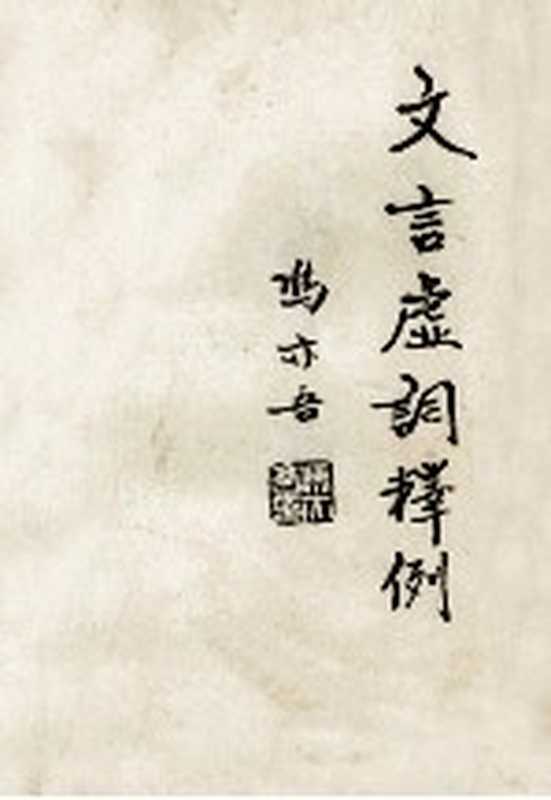 文言虛詞釋例
馮亦吾